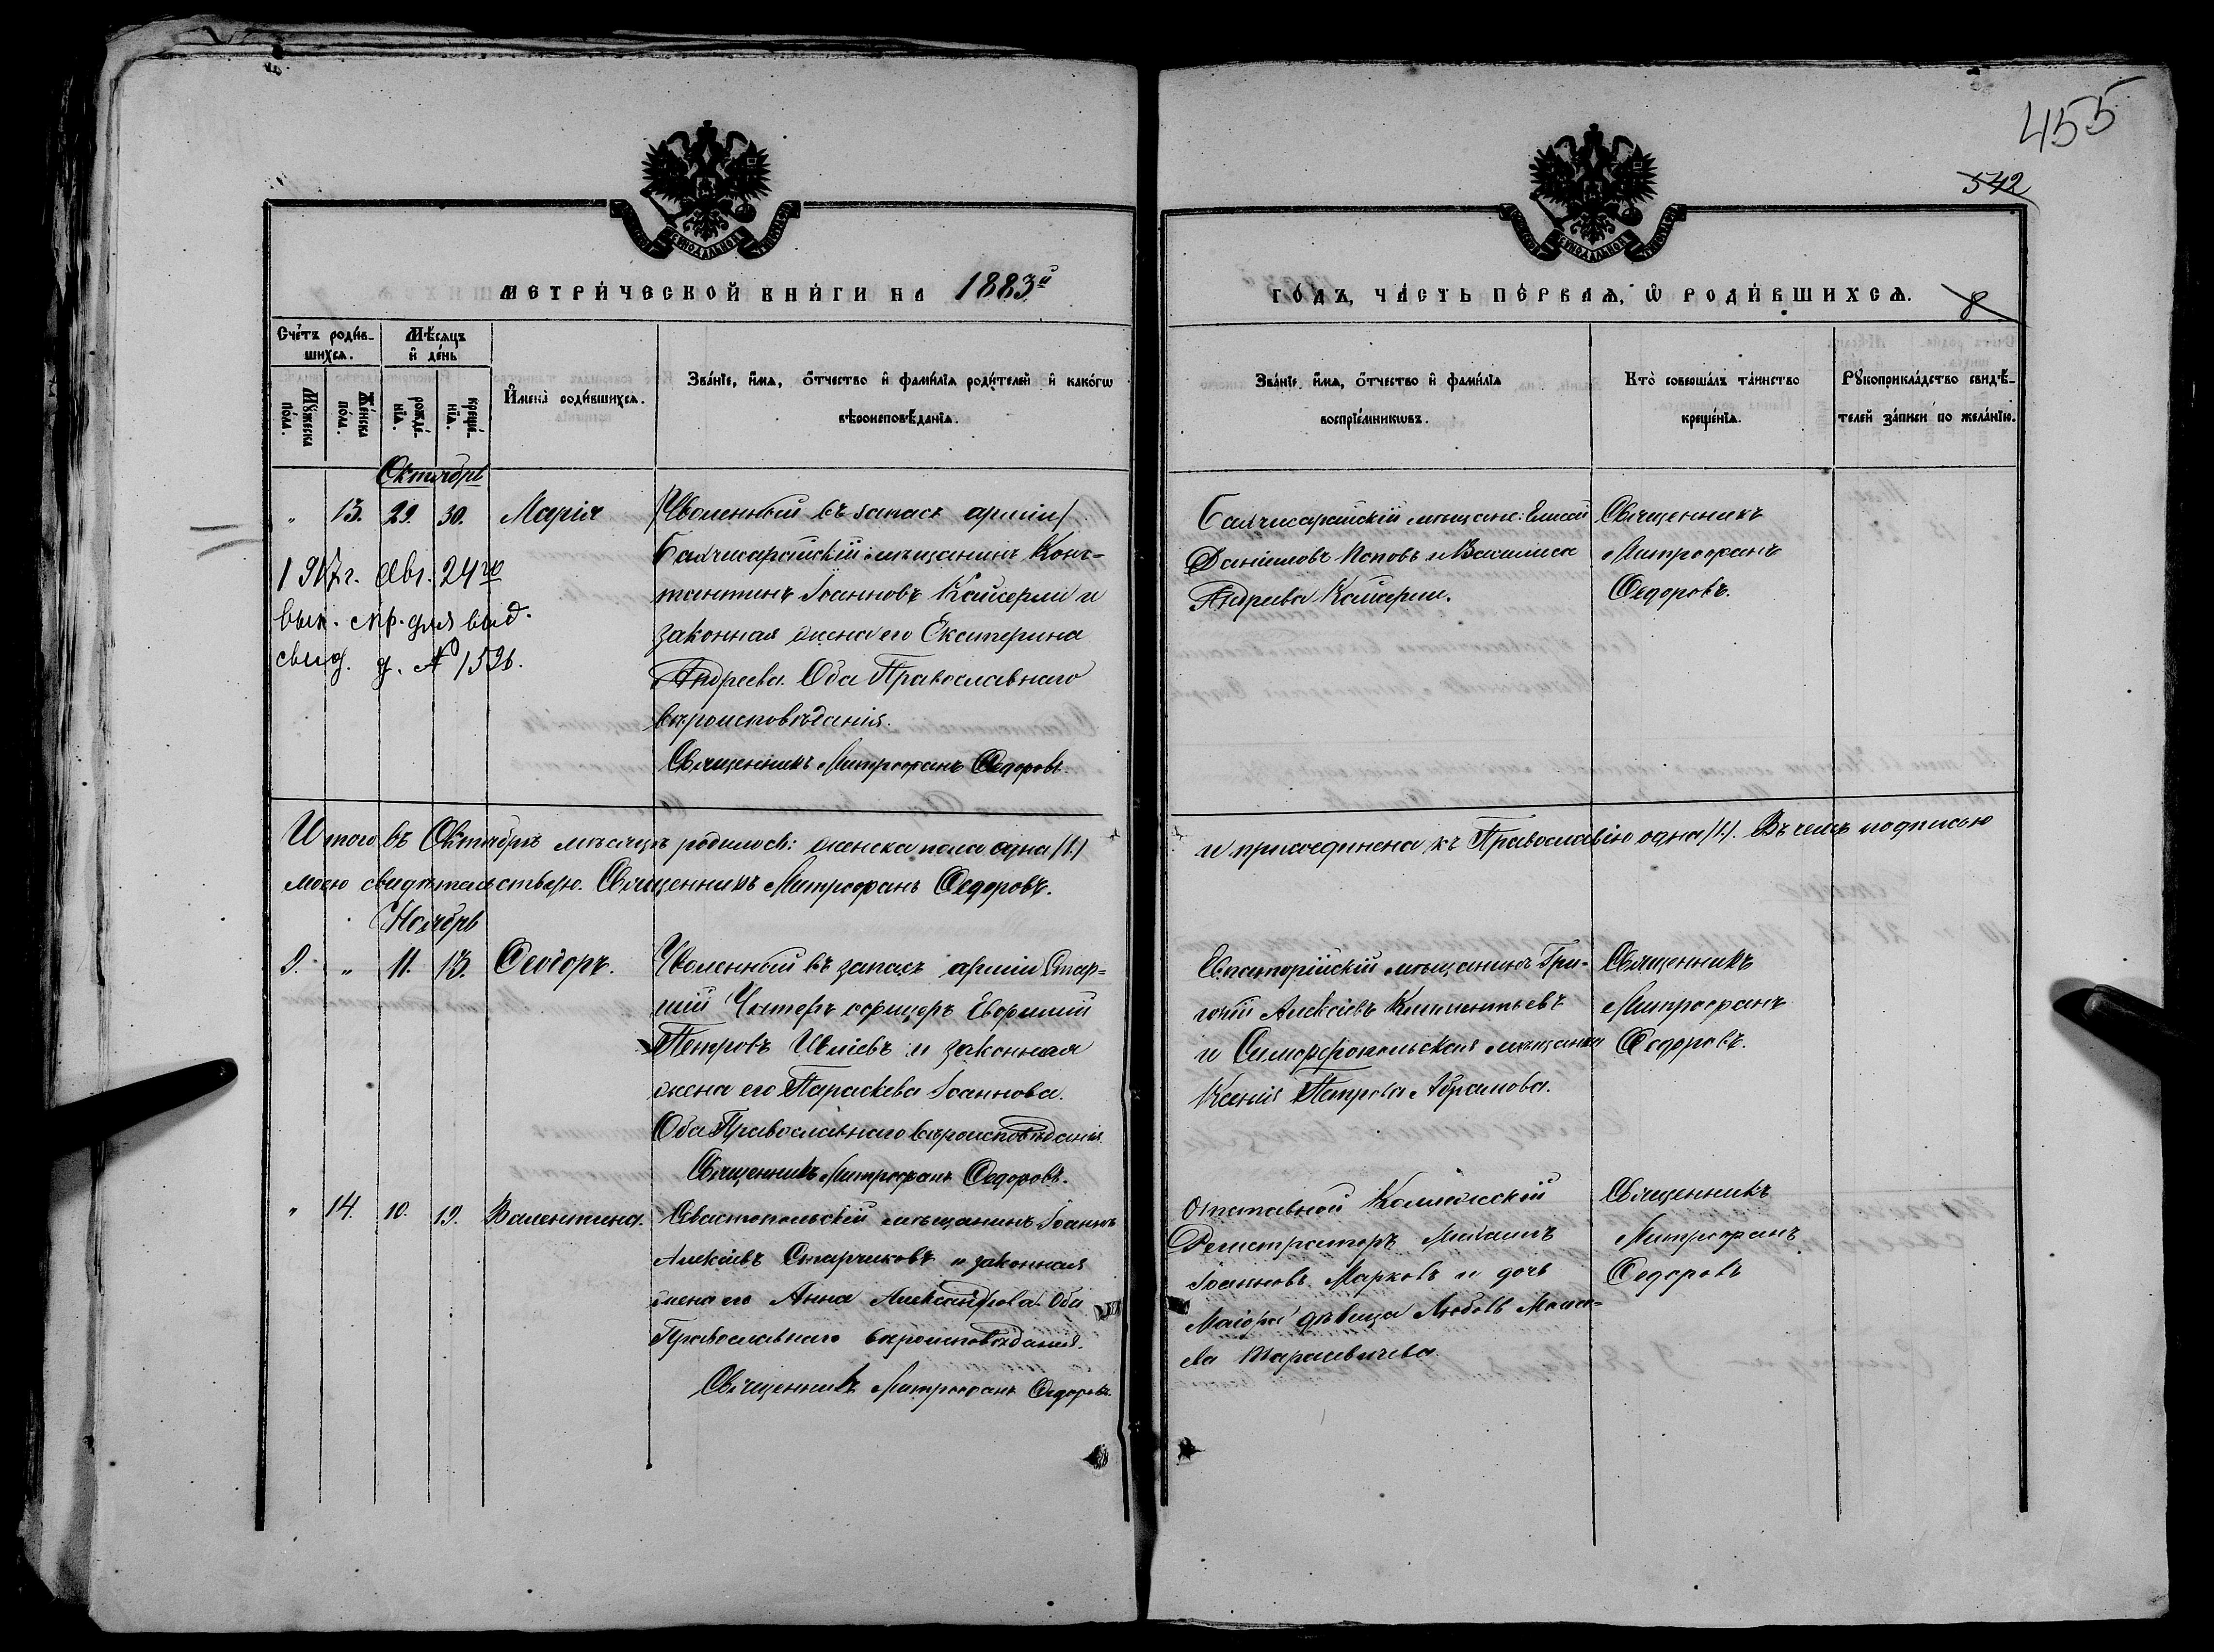 455
542
МЕТРИ́ЧЕСКОЙ КНИ́ГИ НА 1883й
ГО́ДЪ, ЧА́СТЬ ПЕ́РВАѦ, Ѡ РОДИ́ВШИХСѦ. 8
Сче́тъ роди́в-
шихсѧ.
Мѣ́сѧцъ
и де́нь
Мꙋжеска
по́ла.
Же́нска
по́ла.
рожде́-
нїѧ.
креще́-
нїѧ.
Имена̀ роди́вшихсѧ.
Зва́нїе, и́мѧ, о́тчество и фами́лїѧ роди́телей и како́гѡ
вѣроисповѣ́данїѧ.
Зва́нїе, и́мѧ, о́тчество и фами́лїѧ
воспрїе́мникѡвъ.
Кто̀ соверша́лъ та́инство
креще́нїѧ.
Рꙋкоприкла́дство свидѣ́-
телей за́писи по жела́нїю.
Октябрь
" 13. 29. 30. Марія
/Уволенный въ запасъ арміи/
Бахчисарайскій мѣщанинъ Конс=
тантинъ Іоанновъ Кайсерли и
законная жена его Екатерина
Андреева. Оба Православнаго
вѣроисповѣданія.
Священникъ Митрофанъ Ѳедоровъ.
1917г. Авг. 24го
вып. спр. для выд.
свид. д. № 1526.
Бахчисарайскій мѣщане: Елисей
Данииловъ Поповъ и Василиса
Андреева
Священникъ
Митрофанъ
Ѳедоровъ.
Итого въ Октябрѣ мѣсяцѣ родилось: женска пола одна /1/
и присоединена къ Православію одна /1/. Въ чемъ подписью
моею свидѣтельствую. Священникъ Митрофанъ Ѳедоровъ.
Ноябрь
9. " 11. 13. Ѳеодоръ.
Уволенный въ запасъ арміи Стар=
шій Унтеръ офицеръ Евфимій
Петровъ и законная
жена его Параскева Іоаннова.
Оба Православнаго вѣроисповѣданія.
Священникъ Митрофанъ Ѳедоровъ.
Евпаторійскій мѣщанинъ Гри-
горій Алексіевъ Климентьевъ
и Симферопольская мѣщанка
Ксенія Петрова Абрамова.
Священникъ
Митрофанъ
Ѳедоровъ.
" 14. 10. 19. Валентина.
Севастопольскій мѣщанинъ Іоаннъ
Алексіевъ Старчиковъ и законная
жена его Анна Александрова. Оба
Православнаго вѣроисповѣданія.
Священникъ Митрофанъ Ѳедоровъ.
Отставной Коллежскій
Регистраторъ Михаилъ
Іоанновъ Марковъ и дочь
Маіора дѣвица Любовь Моисе=
ева Тарасевичева.
Священникъ
Митрофанъ
Ѳедоровъ